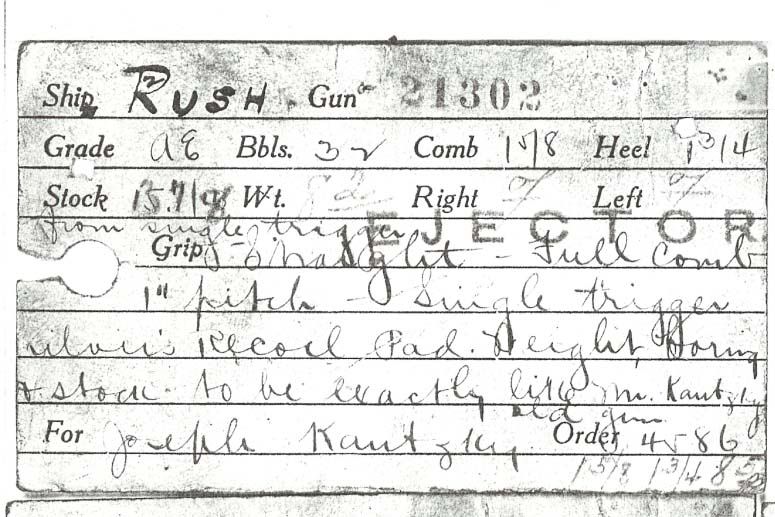 Ship RUSH. Gun 21302
Grade AE Bbls. 32 Comb 1 5/8 Heel 1 3/4
Stock 15.7/8 Wt. 8 2 Right 7 Left 7
from single trigger EJECTOR
Grip Straight - Full comb
1" pitch - Single trigger
Silver's Recoil Pad. Weight, Boring
& stock to be exactly like Mr. Kautzky
old gun
For Joseph Kautzky Order 4586
1 5/8 1 3/4 8